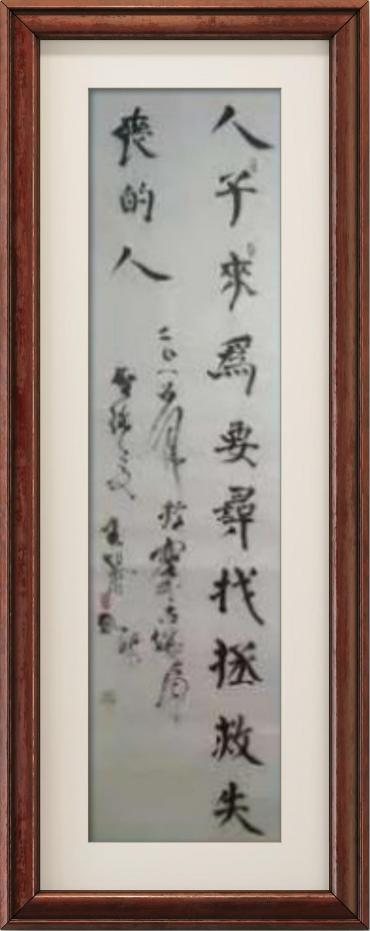 人子來爲要尋找拯救失
喪的人
二〇一六年
聖經